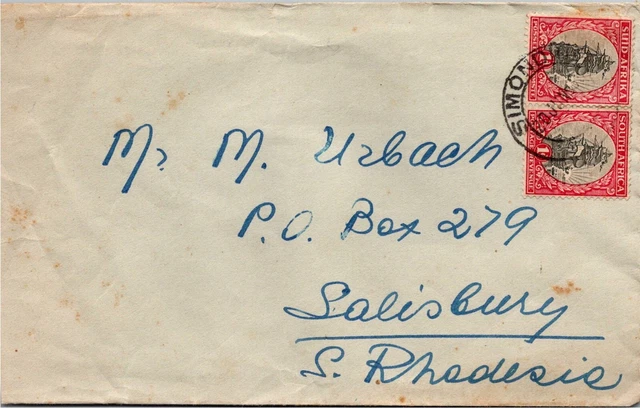 SUID-AFRIKA
SIMON
SOUTH AFRICA
1
Mr M. Urbach
P.O. Box 279
Salisbury
S. Rhodesia